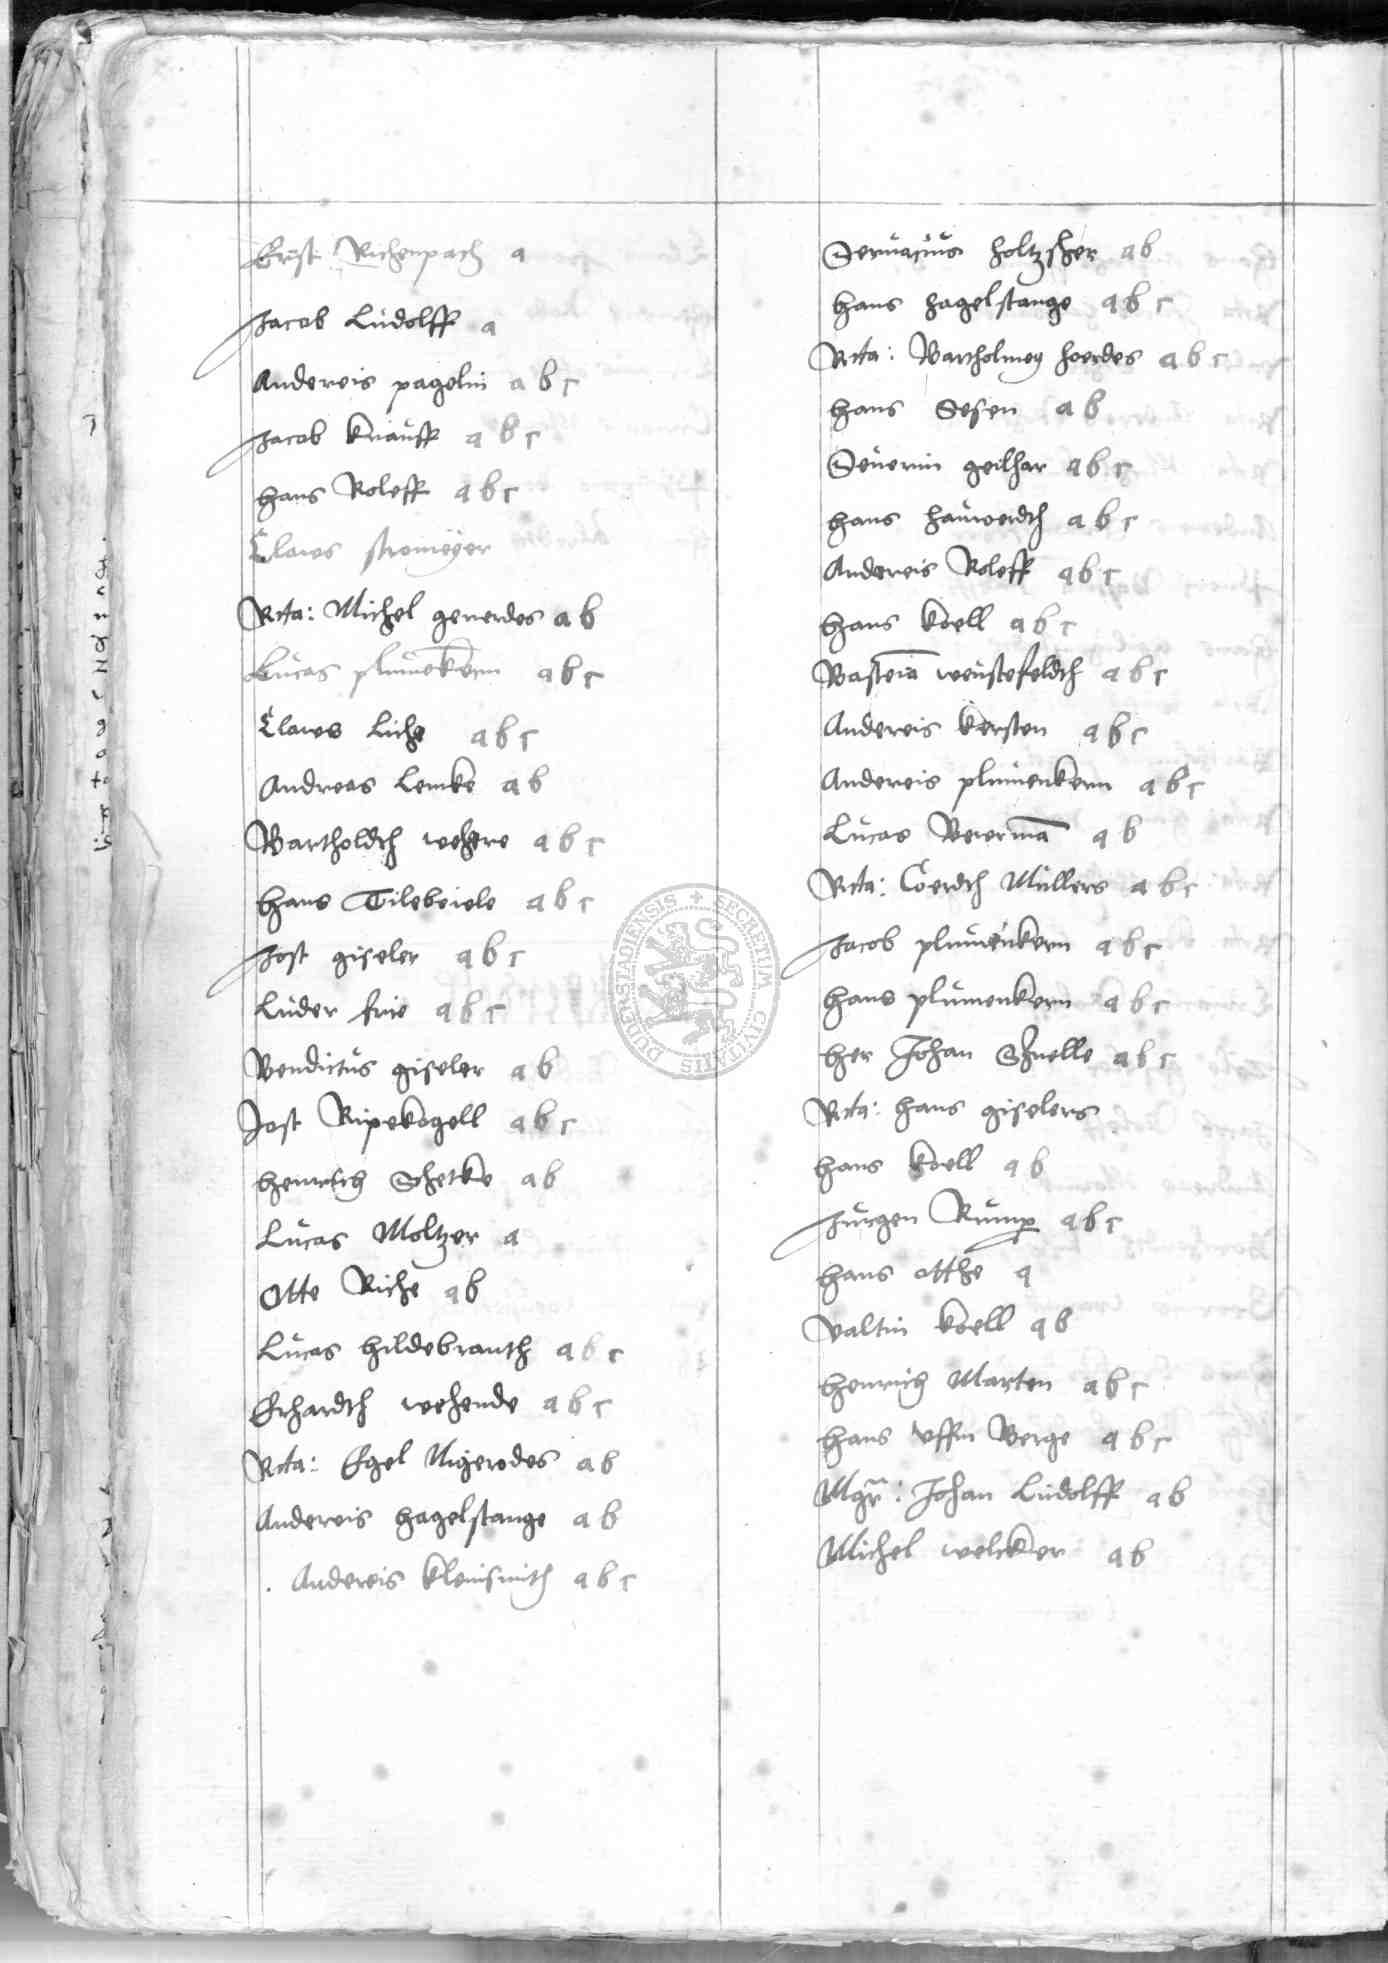 Ernst Richenpach a
Jacob Ludolff a
Andereis pagelin a b c
Jacob knauff a b c
hans Roleff a b c
Clawes stromeyer
Rcta: Michel generdes a b
Lucas plumekern a b c
Clawes Liche a b c
Andreas Lemke a b
Bartholdth wehere a b c
hans Tilebeiele a b c
Jost giseler a b c
Luder frie a b c
Bendictus giseler a b
Jost Ripekogell a b c
henrich Schetke a b
Lucas Moltzer a
Otte Riche a b
Lucas hildebranth a b c
Erhardth wehende a b c
Rcta: Egel Nigerodes a b
Andereis hagelstange a b
Andereis kleinsmith a b c
Servacius holtzscher a b
hans hagelstange a b c
Rcta: Bartholmey hoerdes a b c
hans Sesen a b
Severin geilhar a b c
hans hauwerdth a b c
Andereis Roleff a b c
hans koell a b c
Basteia weustefeldth a b c
Andereis kersten a b c
Andereis plumenkern a b c
Lucas Beierma a b
Rcta: Coerdth Mullers a b c
Jacob plumenkern a b c
hans plumenkern a b c
her Johan Snelle a b c
Rcta: hans giselers
hans koell a b
Jurgen Rump a b c
hans otthe a
valtin koell a b
henrich Marten a b c
hans uffm Berge a b c
Mgr: Johan Ludolff a b
Michel welcker a b
SECRETUM CIVITATIS DUDERSTADIENSIS